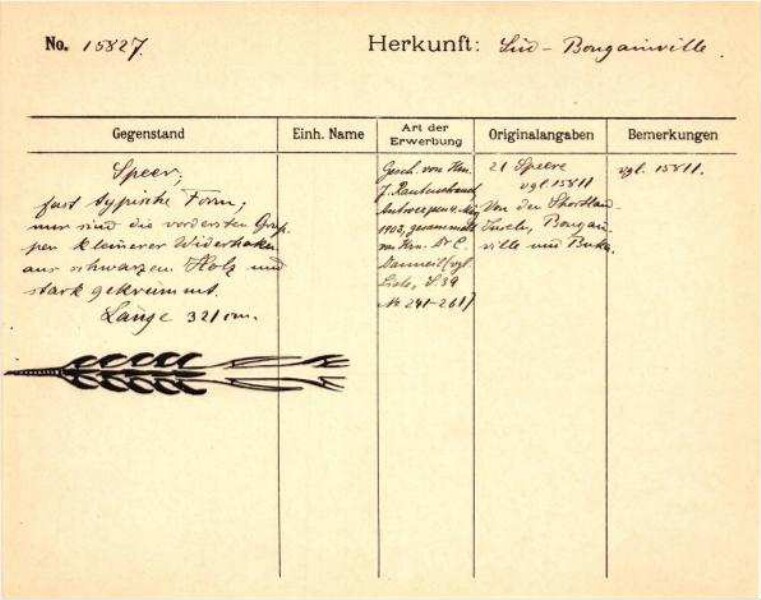 No. 15827.
Herkunft: Süd - Bougainville.
Gegenstand
Einh. Name
Art der Erwerbung
Originalangaben
Bemerkungen
Speer;
fast typische Form;
nur sind die vordersten Grup-
pen kleinerer Widerhaken
aus schwarzem Holz und
stark gekrümmt.
Länge 321 cm.
Gesch. von Hrn.
J. Rautenstrauch
Antwerpen 4. May
1903, gesammelt
von Hrn. Dr C.
Danneil (vgl.
Liste, S. 39
No 241-261)
21 Speere
vgl. 15811
Von den Shortland-
Inseln, Bougain-
ville und Buka.
vgl. 15811.